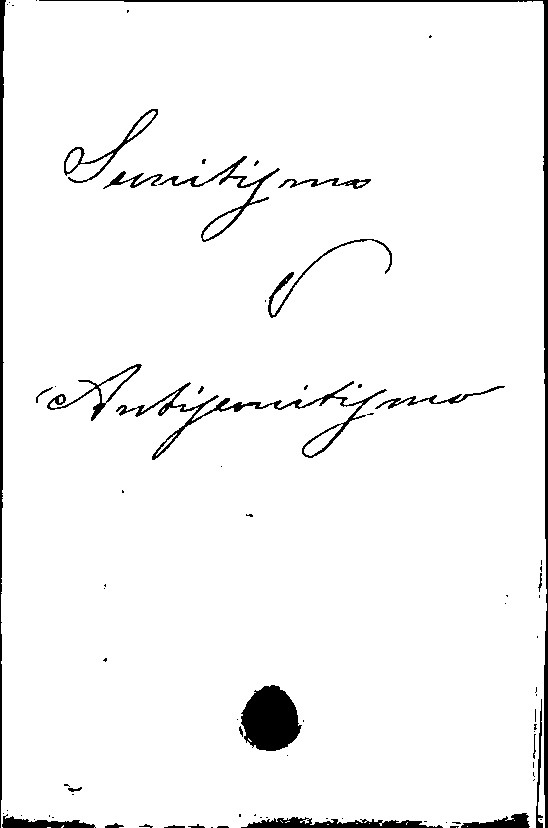 Semitismo
e
Antisemitismo